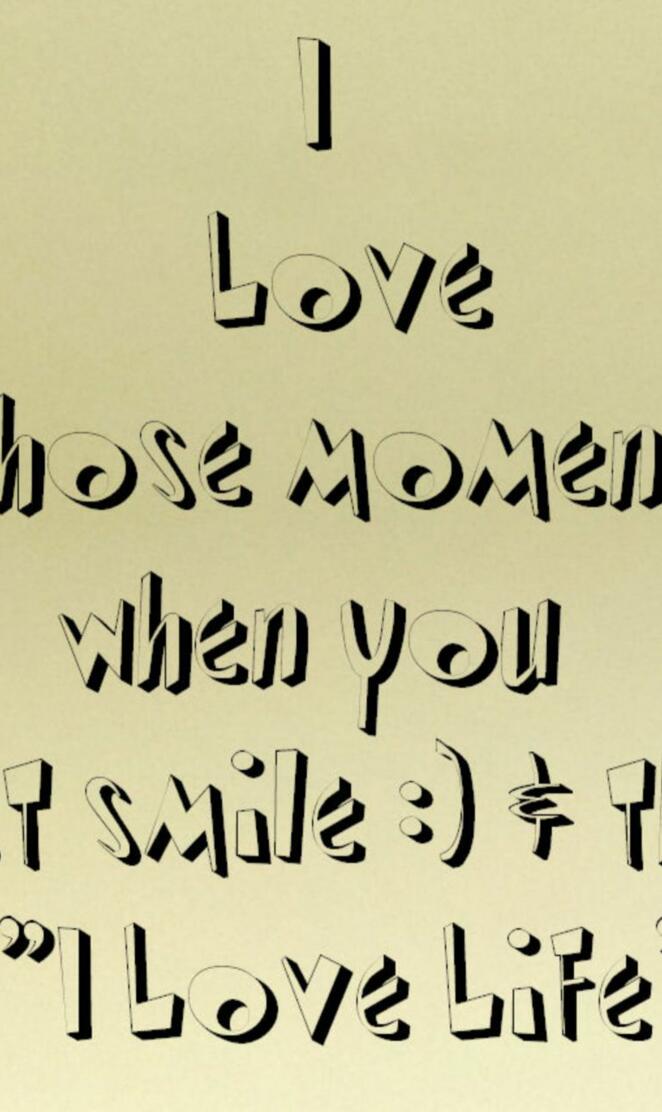 I
Love
hose momen
when you
T smile :) & T
"I Love Life"